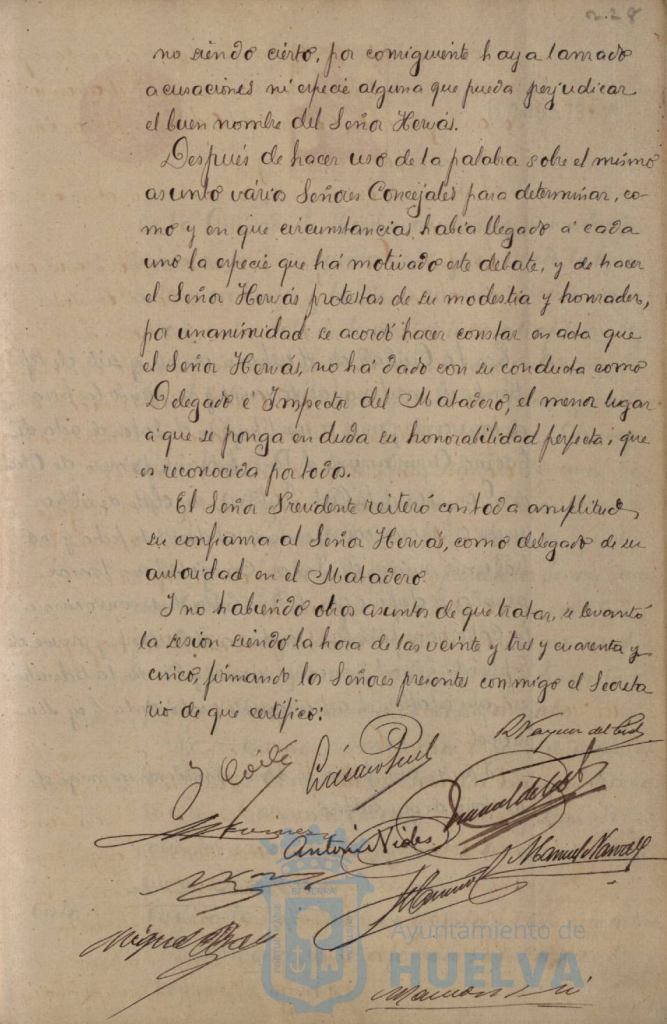 228
no siendo cierto, por consiguiente haya lanzado
acusaciones ni especie alguna que pueda perjudicar
el buen nombre del Señor Hervás.
Después de hacer uso de la palabra sobre el mismo
asunto vários Señores Concejales para determinar, co-
mo y en que circunstancias habia llegado á cada
uno la especie que há motivado este debate, y de hacer
el Señor Hervás protestas de su modestia y honradez,
por unanimidad se acordó hacer constar en acta que
el Señor Hervás, no há dado con su conducta como
Delegado é Inspector del Matadero, el menor lugar
á que se ponga en duda su honorabilidad perfecta, que
es reconocida por todos.
El Señor Presidente reiteró con toda amplitud,
su confianza al Señor Hervás, como delegado de su
autoridad en el Matadero.
I no habiendo otros asuntos de que tratar, se levantó
la sesion siendo la hora de las veinte y tres y cuarenta y
cinco, firmando los Señores presentes con migo el Secreta-
rio de que certifico:
Antonio Vides
Manuel
Miguel
Ayuntamiento de
HUELVA